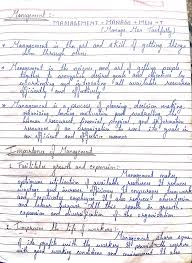 Management :-
MANAGEMENT = MANAGE + MEN + T
(Manage Men Tactfully)
* Management is the art and skill of getting things
done through others.
* Management is the unique and art of getting people
together to accomplish desired goals and objectives by
coordinating and integrating all available resources
efficiently and effectively.
* Management is a process of planning, decision making,
organizing, leading, motivation and controlling the
human resources, financial, physical and information
resources of an organization to reach its goals in
efficient and effective manner.
Importance of Management
1. Facilitates growth and expansion :-
Management makes
optimum utilization of available resources. It reduces
wastage and increases efficiency. It encourages
and motivates employees. It also reduces absenteeism
and labour turnover. All this results in growth,
expansion and diversification of the organisation.
2. Improves the life of workers :-
Management shares some
of its profits with the workers. It provides the workers
with good working environment and conditions. It also